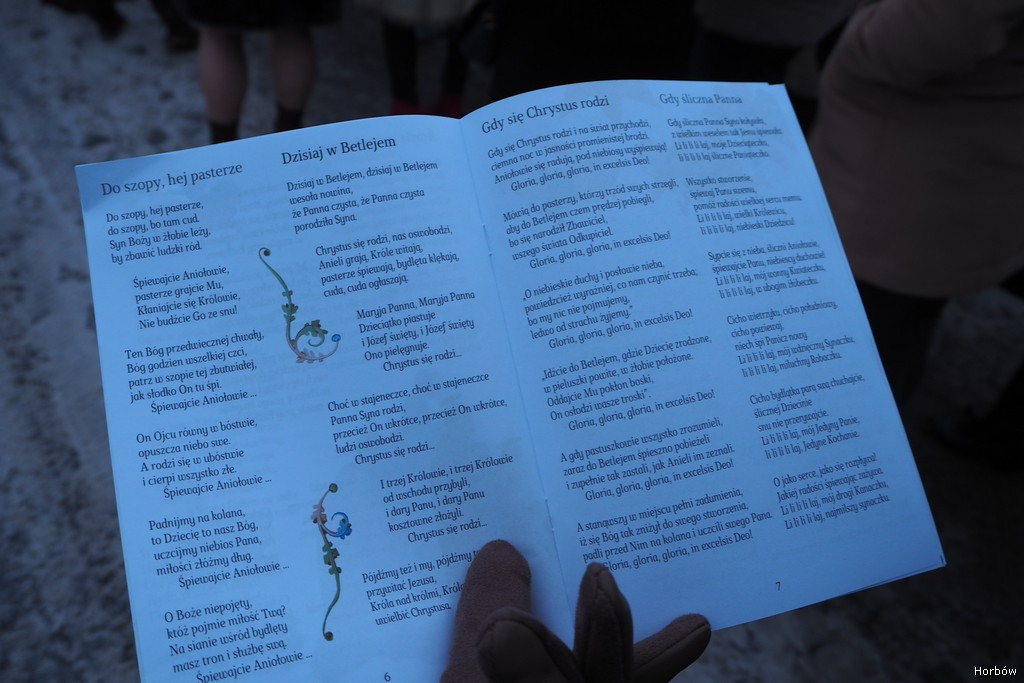 Do szopy, hej pasterze
Do szopy, hej pasterze,
do szopy, bo tam cud.
Syn Boży w żłobie leży,
by zbawić ludzki ród.
Śpiewajcie Aniołowie,
pasterze grajcie Mu,
Kłaniajcie się Królowie,
Nie budźcie Go ze snu!
Ten Bóg przedwiecznej chwały,
Bóg godzien wszelkiej czci,
patrz w szopie tej zbutwiałej,
jak słodko On tu śpi.
Śpiewajcie Aniołowie ...
On Ojcu równy w bóstwie,
opuszcza niebo swe.
A rodzi się w ubóstwie
i cierpi wszystko złe.
Śpiewajcie Aniołowie ...
Padnijmy na kolana,
to Dziecię to nasz Bóg,
uczcijmy niebios Pana,
miłości złóżmy dług.
Śpiewajcie Aniołowie ...
O Boże niepojęty,
któż pojmie miłość Twą?
Na sianie wśród bydlęty
masz tron i służbę swą.
Śpiewajcie Aniołowie ...
Dzisiaj w Betlejem
Dzisiaj w Betlejem, dzisiaj w Betlejem
wesoła nowina,
że Panna czysta, że Panna czysta
porodziła Syna.
Chrystus się rodzi, nas oswobodzi,
Anieli grają, Króle witają,
pasterze śpiewają, bydlęta klękają,
cuda, cuda ogłaszają.
Maryja Panna, Maryja Panna
Dzieciątko piastuje
i Józef święty, i Józef święty
Ono pielęgnuje.
Chrystus się rodzi...
Choć w stajeneczce, choć w stajeneczce
Panna Syna rodzi,
przecież On wkrótce, przecież On wkrótce,
ludzi oswobodzi.
Chrystus się rodzi...
I trzej Królowie, i trzej Królowie
od wschodu przybyli,
i dary Panu, i dary Panu
kosztowne złożyli.
Chrystus się rodzi...
Pójdźmy też i my, pójdźmy
przywitać Jezusa,
Króla nad królmi,
uwielbić Chrystusa.
6
Gdy się Chrystus rodzi
Gdy się Chrystus rodzi i na świat przychodzi,
ciemna noc w jasności promienistej brodzi.
Aniołowie się radują, pod niebiosy wyśpiewują!
Gloria, gloria, gloria, in excelsis Deo!
Mówią do pasterzy, którzy trzód swych strzegli,
aby do Betlejem czem prędzej pobiegli,
bo się narodził Zbawiciel,
wszego świata Odkupiciel.
Gloria, gloria, gloria, in excelsis Deo!
„O niebieskie duchy i posłowie nieba,
powiedzcież wyraźniej, co nam czynić trzeba;
bo my nic nie pojmujemy,
ledwo od strachu żyjemy."
Gloria, gloria, gloria, in excelsis Deo!
„Idźcie do Betlejem, gdzie Dziecię zrodzone,
w pieluszki powite, w żłobie położone.
Oddajcie Mu pokłon boski,
On osłodzi wasze troski".
Gloria, gloria, gloria, in excelsis Deo!
A gdy pastuszkowie wszystko zrozumieli,
zaraz do Betlejem śpieszno pobieżeli
i zupełnie tak zastali, jak Anieli im zeznali.
Gloria, gloria, gloria, in excelsis Deo!
A stanąwszy w miejscu pełni zadumienia,
iż się Bóg tak zniżył do swego stworzenia,
padli przed Nim na kolana i uczcili swego Pana.
Gloria, gloria, gloria, in excelsis Deo!
Gdy śliczna Panna
Gdy śliczna Panna Syna kołysała,
z wielkim weselem tak Jemu śpiewała:
Li li li li laj, moje Dzieciąteczko,
Li li li li laj, śliczne Paniąteczko.
Wszystko stworzenie,
śpiewaj Panu swemu,
pomóż radości wielkiej sercu memu.
Li li li li laj, wielki Królewicu,
Li li li li laj, niebieski Dziedzicu!
Sypcie się z nieba, śliczni Aniołowie,
śpiewajcie Panu, niebiescy duchowie!
Li li li li laj, mój wonny Kwiateczku,
Li li li li laj, w ubogim żłóbeczku.
Cicho wietrzyku, cicho południowy,
cicho powiewaj,
niech śpi Panicz nowy,
Li li li li laj, mój wdzięczny Synaczku,
Li li li li laj, miluchny Robaczku.
Cicho bydlątka parą swą chuchajcie,
ślicznej Dziecinie
snu nie przerywajcie.
Li li li li laj, mój Jedyny Panie,
Li li li li laj, Jedyne Kochanie.
O jako serce, jako się rozpływa!
Jakiej radości śpiewając zażywa.
Li li li li laj, mój drogi Kanaczku,
Li li li li laj, najmilszy synaczku.
7
Horbów